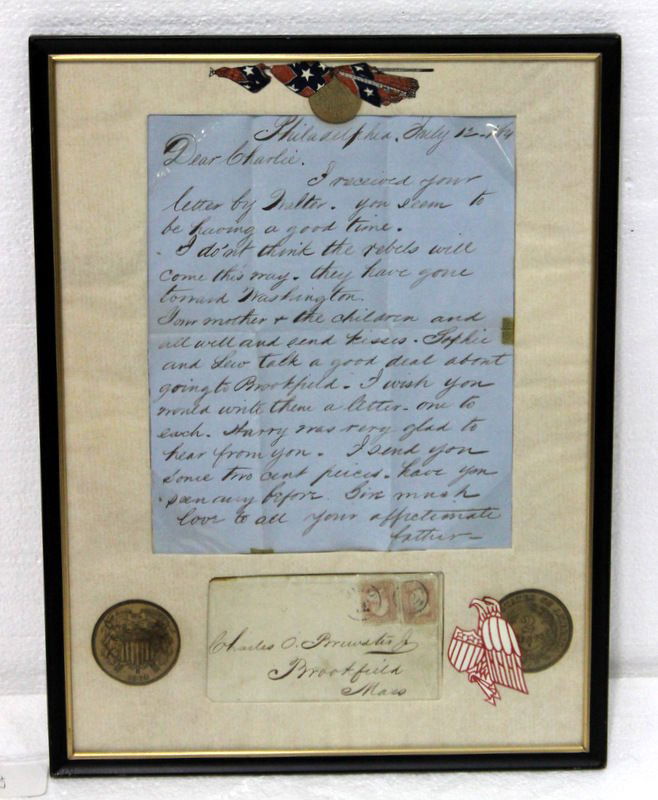 Philadelphia, July 12 - /64
Dear Charlie.
I received your
letter by Walter. you seem to
be having a good time.
I do'nt think the rebels will
come this way. they have gone
toward Washington.
Your mother & the children and
all well and send kisses. Sophie
and Lew talk a good deal about
going to Brookfield. I wish you
would write them a letter - one to
each. Harry was very glad to
hear from you. I send you
some two cent peices. have you
seen any before. Give much
love to all your affectionate
father -
Charles O. Brewster Jr
Brookfield
Mass
2